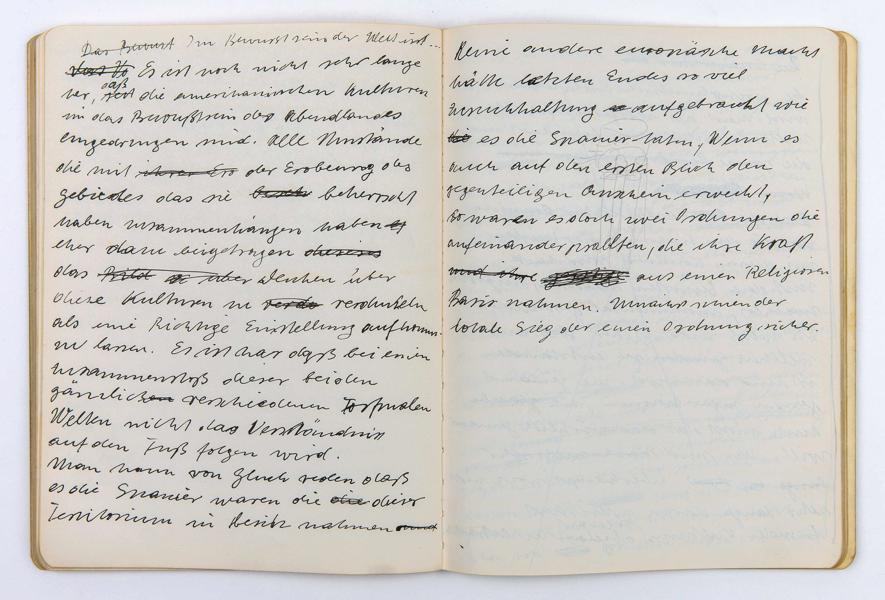 Das Bewust Im Bewustsein der Welt ist...
Es ist noch nicht sehr lange
her, daß die amerikanischen Kulturen
in das Bewußtsein des Abendlandes
eingedrungen sind. Alle Umstände
die mit ihrer Ero der Eroberung des
gebietes das sie beherrscht
haben zusammenhängen haben
eher dazu beigetragen
das Bild über
diese Kulturen zu verdunkeln
als eine Richtige Einstellung aufkomm-
zu lassen. Es ist klar daß bei einem
zusammenstoß dieser beiden
gänzlich verschiedenen
Welten nicht das Verständnis
auf den Fuß folgen wird.
Man kann von Glück reden daß
es die Spanier waren die die dieser
Territorium in Besitz nahmen
Keine andere europäische Macht
hätte letzten Endes so viel
zurückhaltung aufgebracht wie
die es die Spanier taten, Wenn es
auch auf den ersten Blick den
gegenteiligen Anschein erweckt,
so waren es doch zwei Ordnungen die
aufeinander prallten, die ihre Kraft
und ihre aus einer Religiösen
Basis nahmen. Umso der
totale Sieg der einen Ordnung sicher.